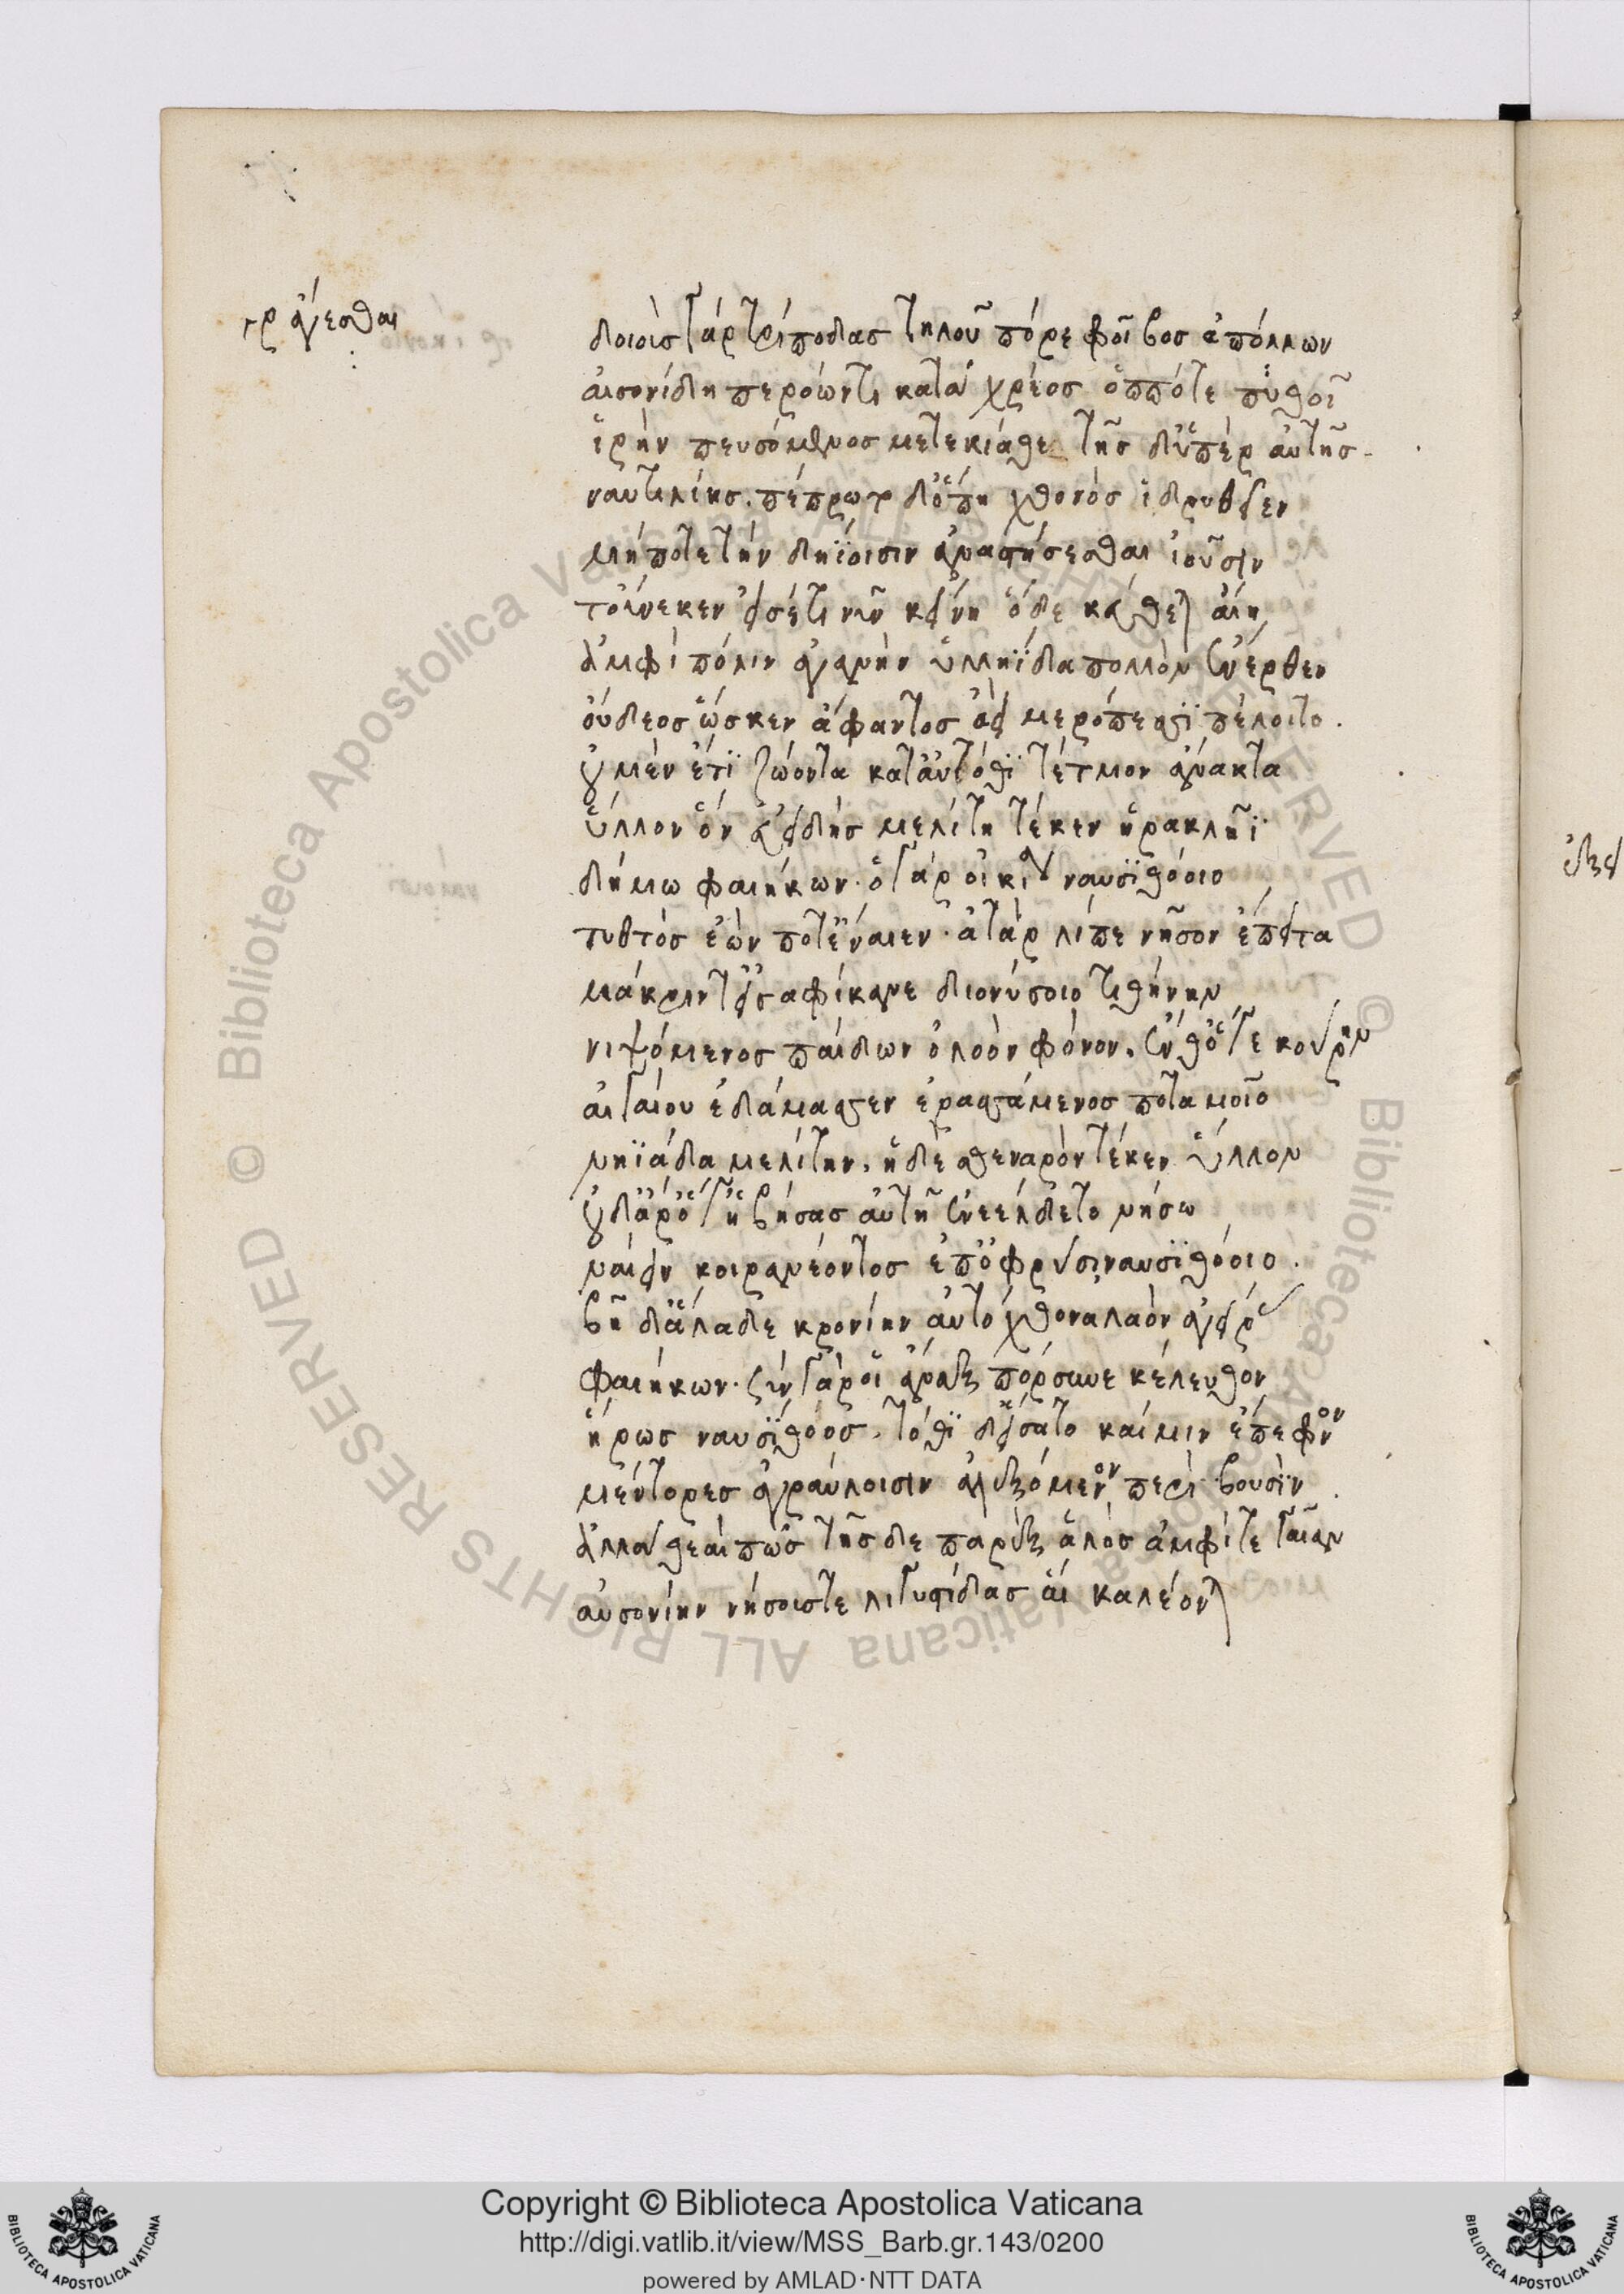 γρ ἄγεσθαι
δοιοὺς γάρ τρίποδας τηλοῦ πόρε φοῖβος ἀπόλλων
αἰσονίδη περόωντι κατὰ χρέος ὁππότε πυθοῖ
ἱρὴν πευσόμενος μετεκίαθε τῆς δ᾽ὑπὲρ αὐτῆς
ναυτιλίης. πέπρωτο δ᾽ὅπη χθονὸς ἱδρυθεῖεν
μήποτε τὴν δηΐοισιν ἀναστήσεσθαι ἰοῦσιν
τοὔνεκεν εἰσέτι νῦν κείνη ὅδε κεύθεται αἴη
ἀμφὶ πόλιν ἀγανὴν ὑλληΐδα πολλὸν ἔνερθεν
οὔδεος ὥς κεν ἄφαντος ἀεὶ μερόπεσσι πέλοιτο.
οὐ μὲν ἔτι ζώοντα καταυτόθι τέτμον ἄνακτα
ὕλλον ὃν εὐειδὴς μελίτη τέκεν ἡρακλῆϊ
δήμω φαιήκων. ὁ γὰρ οἰκία ναυσιθόοιο
τυτθὸς ἐών ποτ᾽ἔναιεν. ἀτὰρ λίπε νῆσον ἔπειτα
μάκριν τ᾽εἰσαφίκανε διονύσοιο τιθήνην
νιψόμενος παίδων ὀλοὸν φόνον. ἔνθ᾽ὅγε κούρην
αἰγαίου ἐδάμασσεν ἐρασσάμενος ποταμοῖο
νηϊάδα μελίτην. ἡ δὲ σθεναρὸν τέκεν ὕλλον
οὐδ᾽ἄρ᾽ὅγ᾽ἡβήσας αὐτῆ ἐνεέλδετο νήσω
ναίειν κοιρανέοντος ἐπ᾽ὀφρύσι ναυσιθόοιο.
βῆ δ᾽ἅλαδε κρονίην αὐτόχθονα λαὸν ἀγείρας
φαιήκων. σὺν γάρ οἱ ἄναξ πόρσυνε κέλευθον
ἥρως ναυσίθοος. τόθι δ᾽εἵσατο καί μιν ἔπεφνον
μέντορες ἀγραύλοισιν ἀλεξόμενον περὶ βουσίν
ἀλλὰ θεαὶ πῶς τῆσδε παρὲξ ἁλὸς ἀμφί τε γαῖαν
αὐσονίην νήσους τε λιγυστίδας αἳ καλέονται
Copyright © Biblioteca Apostolica Vaticana
http://digi.vatlib.it/view/MSS_Barb.gr.143/0200
powered by AMLAD·NTT DATA